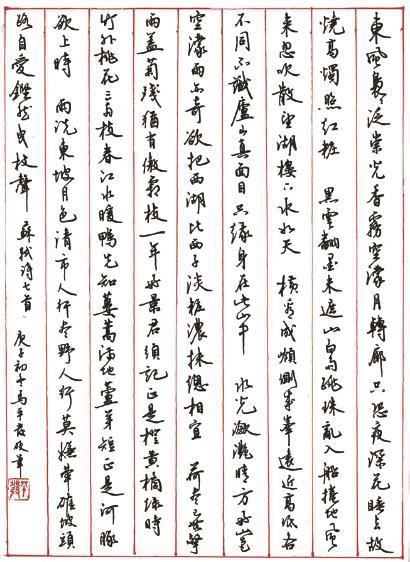 東風裊々泛崇光香霧空濛月轉廊只恐夜深花睡去故
燒高燭照紅粧 黑雲翻墨未遮山白雨跳珠亂入船捲地風
來忽吹散望湖樓下水如天 橫看成嶺側成峯遠近高低各
不同不識廬山真面目只緣身在此山中 水光瀲灩晴方好山色
空濛雨亦奇欲把西湖比西子淡粧濃抹總相宜 荷盡已無擎
雨蓋菊殘猶有傲霜枝一年好景君須記正是橙黃橘綠時
竹外桃花三兩枝春江水暖鴨先知蔞蒿滿地蘆芽短正是河豚
欲上時 雨洗東坡月色清市人行盡野人行莫嫌犖确坡頭
路自愛鏗然曳杖聲 蘇軾詩七首 庚子初冬馬平